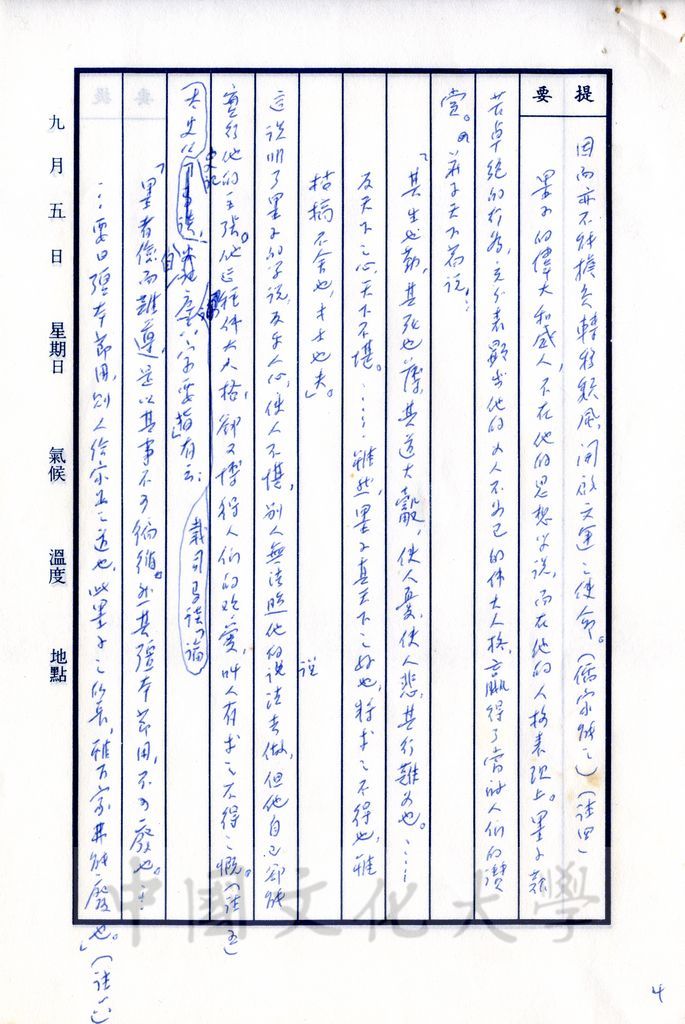 提
要
因而亦不能擔負轉移頹風,開啟文運之使命。(儒家能之)(註四)
墨子的偉大和感人,不在他的思想學說,而在他的人格表現上。墨子艱
苦卓絕的行為,充分表顯出他的為人不為己的偉大人格,贏得了當時人們的讚
賞。莊子天下篇說:
「其生也勤,其死也薄,其道大觳,使人憂,使人悲,其行難為也。……
反天下之心,天下不堪。……雖然,墨子真天下之好也,將求之不得也,雖
枯槁不舍也,才士也夫。」
這說明了墨子的學說,反乎人心,使人不堪,別人無法照他的說法去做,但他自己卻能
實行他的主張。他這種偉大人格,卻又博得人們的欣愛,叫人有求之不得之慨。(註五)
太史公自序
史記
載司馬談「論
六家要指」有云:
「墨者儉而難遵,是以其事不可徧循。然其彊本節用,不可廢也。…
…要曰彊本節用,則人給家足之道也,此墨子之所長,雖百家弗能廢也。」(註六)
九月五日 星期日 氣候 溫度 地點
中國文化大學
4